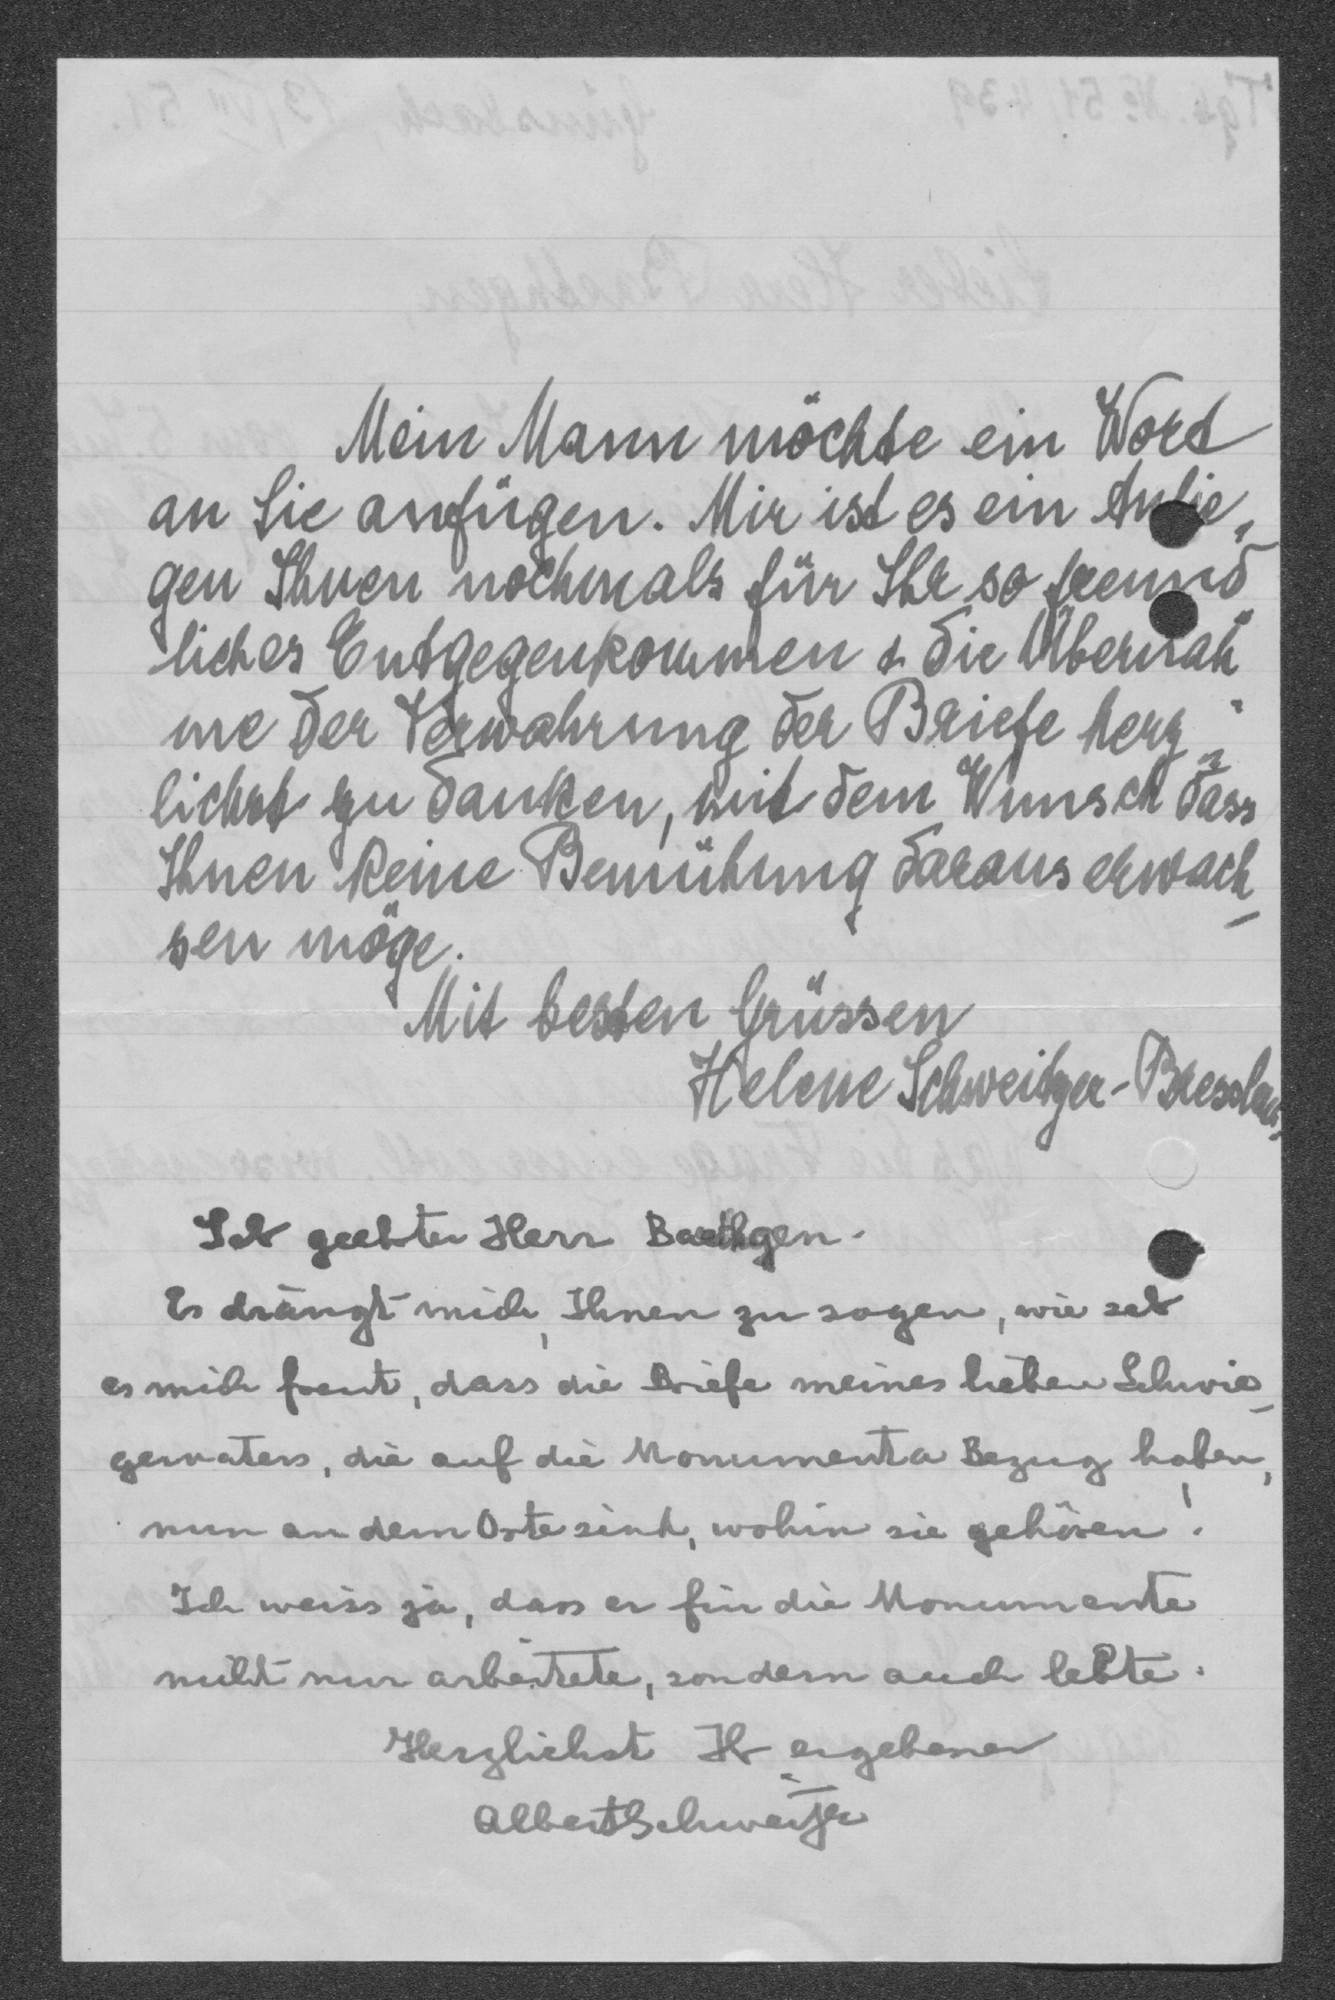 Mein Mann möchte ein Wort
an Sie anfügen. Mir ist es ein Anlie-
gen Ihnen nochmals für Ihr so freund
liches Entgegenkommen & die Übernah-
me der Verwahrung der Briefe herz-
lichst zu danken, mit dem Wunsch dass
Ihnen keine Bemühung daraus erwach-
sen möge.
Mit besten Grüssen
Helene Schweitzer-Bresslau
Sehr geehrter Herr Baethgen.
Es drängt mich, Ihnen zu sagen, wie sehr
es mich freut, dass die Briefe meines lieben Schwie-
gervaters, die auf die Monumenta Bezug haben,
nun an dem Orte sind, wohin sie gehören!
Ich weiss ja, dass er für die Monumente
nicht nur arbeitete, sondern auch lebte.
Herzlichst Ihr ergebener
Albert Schweitzer